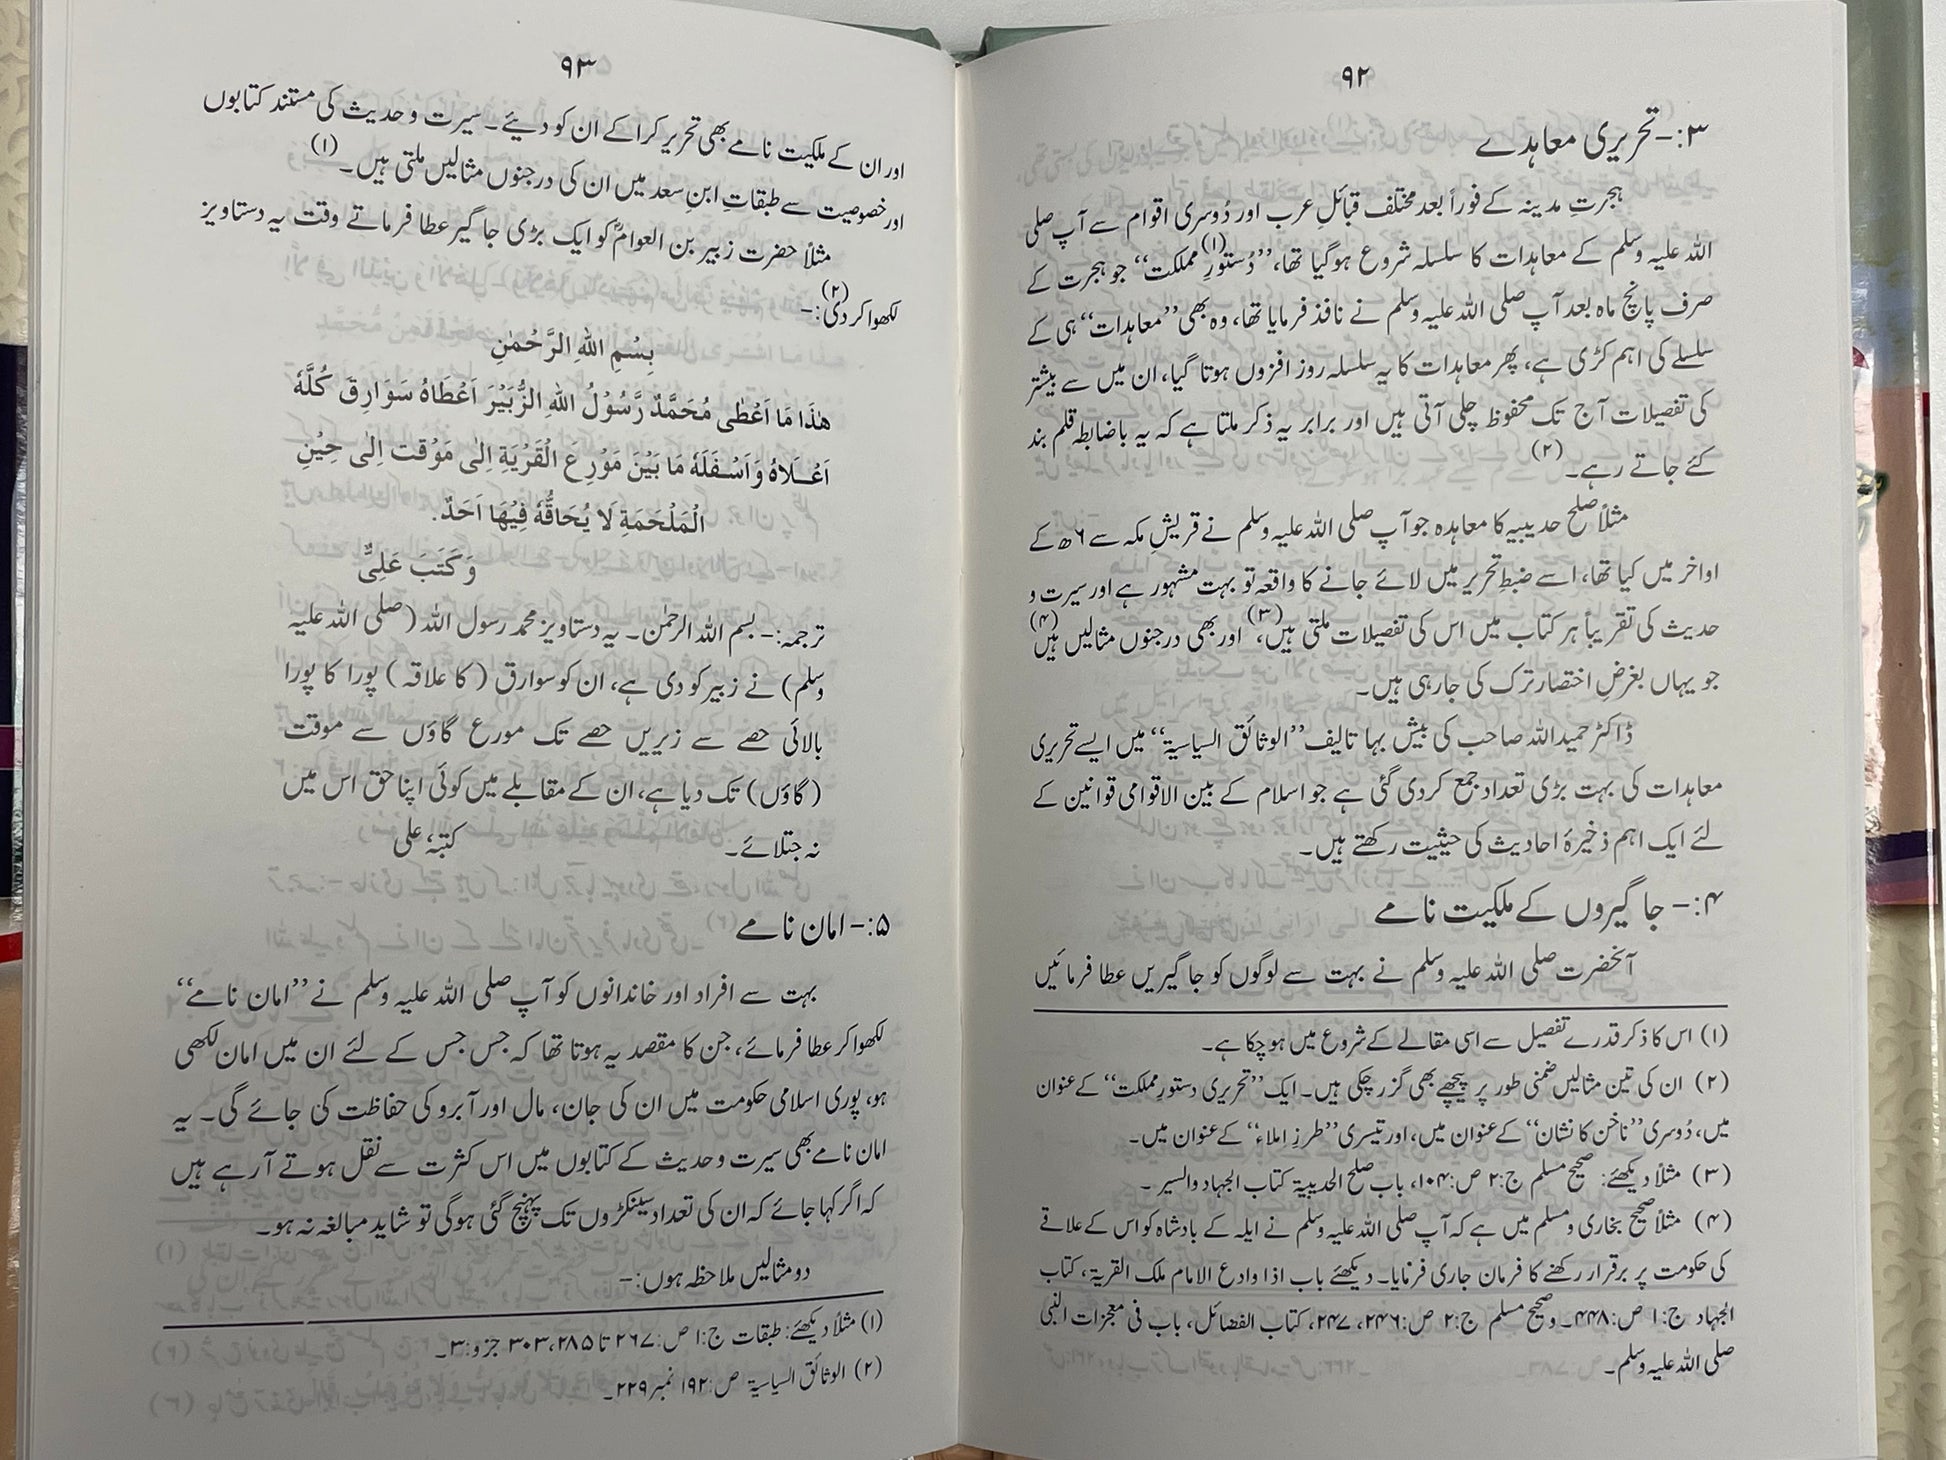 ۹۲
۳:- تحریری معاہدے
ہجرتِ مدینہ کے فوراً بعد مختلف قبائلِ عرب اور دُوسری اقوام سے آپ صلی
اللہ علیہ وسلم کے معاہدات کا سلسلہ شروع ہوگیا تھا، ’’دُستورِ مملکت‘‘(۱) جو ہجرت کے
صرف پانچ ماہ بعد آپ صلی اللہ علیہ وسلم نے نافذ فرمایا تھا، وہ بھی ’’معاہدات‘‘ ہی کے
سلسلے کی اہم کڑی ہے، پھر معاہدات کا یہ سلسلہ روز افزوں ہوتا گیا، ان میں سے بیشتر
کی تفصیلات آج تک محفوظ چلی آتی ہیں اور برابر یہ ذکر ملتا ہے کہ یہ باضابطہ قلم بند
کئے جاتے رہے۔(۲)
مثلاً صلح حدیبیہ کا معاہدہ جو آپ صلی اللہ علیہ وسلم نے قریشِ مکہ سے ۶ھ کے
اواخر میں کیا تھا، اسے ضبطِ تحریر میں لائے جانے کا واقعہ تو بہت مشہور ہے اور سیرت و
حدیث کی تقریباً ہر کتاب میں اس کی تفصیلات ملتی ہیں،(۳) اور بھی درجنوں مثالیں ہیں(۴)
جو یہاں بغرضِ اختصار ترک کی جارہی ہیں۔
ڈاکٹر حمیداللہ صاحب کی بیش بہا تالیف ’’الوثائق السیاسیۃ‘‘ میں ایسے تحریری
معاہدات کی بہت بڑی تعداد جمع کردی گئی ہے جو اسلام کے بین الاقوامی قوانین کے
لئے ایک اہم ذخیرۂ احادیث کی حیثیت رکھتے ہیں۔
۴:- جاگیروں کے ملکیت نامے
آنحضرت صلی اللہ علیہ وسلم نے بہت سے لوگوں کو جاگیریں عطا فرمائیں
(۱) اس کا ذکر قدرے تفصیل سے اسی مقالے کے شروع میں ہوچکا ہے۔
(۲) ان کی تین مثالیں ضمنی طور پر پیچھے بھی گزر چکی ہیں۔ ایک ’’تحریری دستورِ مملکت‘‘ کے عنوان
میں، دُوسری ’’ناخن کا نشان‘‘ کے عنوان میں، اور تیسری ’’طرزِ اِملاء‘‘ کے عنوان میں۔
(۳) مثلاً دیکھئے: صحیح مسلم ج:۲ ص:۱۰۴، باب صلح الحدیبیۃ کتاب الجہاد والسیر۔
(۴) مثلاً صحیح بخاری و مسلم میں ہے کہ آپ صلی اللہ علیہ وسلم نے ایلہ کے بادشاہ کو اس کے علاقے
کی حکومت پر برقرار رکھنے کا فرمان جاری فرمایا۔ دیکھئے باب اذا وادع الامام ملک القریۃ، کتاب
الجہاد ج:۱ ص:۴۴۸۔ و صحیح مسلم ج:۲ ص:۲۴۶، ۲۴۷، کتاب الفضائل، باب فی معجزات النبی
صلی اللہ علیہ وسلم۔
۹۳
اور ان کے ملکیت نامے بھی تحریر کرا کے ان کو دیئے۔ سیرت و حدیث کی مستند کتابوں
اور خصوصیت سے طبقاتِ ابنِ سعد میں ان کی درجنوں مثالیں ملتی ہیں۔(۱)
مثلاً حضرت زبیر بن العوامؓ کو ایک بڑی جاگیر عطا فرماتے وقت یہ دستاویز
لکھوا کر دی:-(۲)
بِسْمِ اللهِ الرَّحْمٰنِ
هٰذَا مَا اَعْطٰى مُحَمَّدٌ رَّسُوْلُ اللهِ الزُّبَيْرَ اَعْطَاهُ سَوَارِقَ كُلَّهٗ
اَعْلَاهُ وَاَسْفَلَهٗ مَا بَيْنَ مَوْرِعِ الْقَرْيَةِ اِلٰى مَوْقت اِلٰى حِيْنِ
الْمَلْحَمَةِ لَا يُحَاقُّهٗ فِيْهَا اَحَدٌ.
وَكَتَبَ عَلِىٌّ
ترجمہ:- بسم اللہ الرحمٰن۔ یہ دستاویز محمد رسول اللہ (صلی اللہ علیہ
وسلم) نے زبیر کو دی ہے، ان کو سوارق (کا علاقہ) پورا کا پورا
بالائی حصے سے زیریں حصے تک مورع گاؤں سے موقت
(گاؤں) تک دیا ہے، ان کے مقابلے میں کوئی اپنا حق اس میں
نہ جتلائے۔ کتبہٗ علی
۵:- امان نامے
بہت سے افراد اور خاندانوں کو آپ صلی اللہ علیہ وسلم نے ’’امان نامے‘‘
لکھوا کر عطا فرمائے، جن کا مقصد یہ ہوتا تھا کہ جس جس کے لئے ان میں امان لکھی
ہو، پوری اسلامی حکومت میں ان کی جان، مال اور آبرو کی حفاظت کی جائے گی۔ یہ
امان نامے بھی سیرت و حدیث کے کتابوں میں اس کثرت سے نقل ہوتے آرہے ہیں
کہ اگر کہا جائے کہ ان کی تعداد سینکڑوں تک پہنچ گئی ہوگی تو شاید مبالغہ نہ ہو۔
دو مثالیں ملاحظہ ہوں:-
(۱) مثلاً دیکھئے: طبقات ج:۱ ص:۲۶۷ تا ۲۸۵، ۳۰۳ جزو:۳۔
(۲) الوثائق السیاسیۃ ص:۱۹۲ نمبر ۲۲۹۔